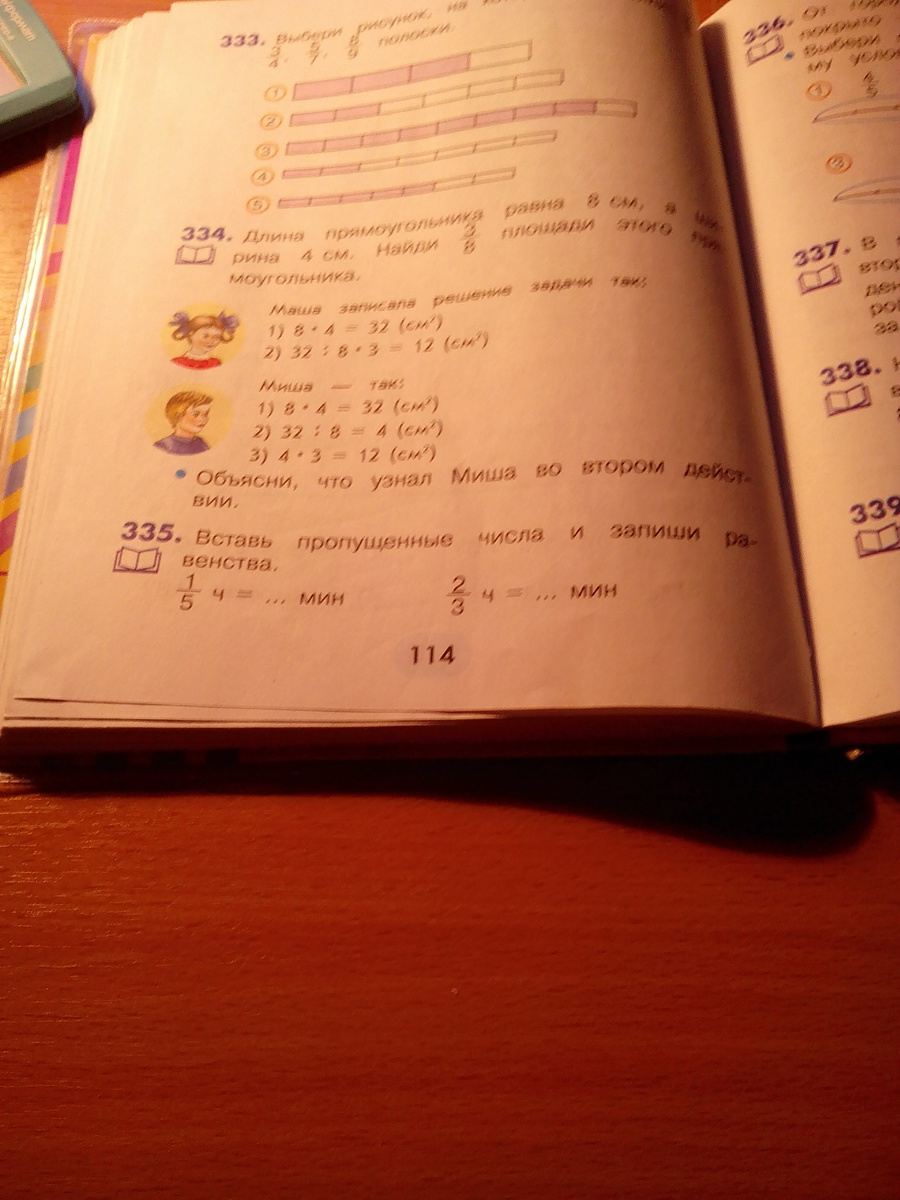 333. Выбери рисунок, на
3/4, 5/7, 8/9 полоски.
1
2
3
4
5
334. Длина прямоугольника равна 8 см, а ши-
рина 4 см. Найди 3/8 площади этого пря-
моугольника.
Маша записала решение задачи так:
1) 8 · 4 = 32 (см²)
2) 32 : 8 · 3 = 12 (см²)
Миша — так:
1) 8 · 4 = 32 (см²)
2) 32 : 8 = 4 (см²)
3) 4 · 3 = 12 (см²)
• Объясни, что узнал Миша во втором дейст-
вии.
335. Вставь пропущенные числа и запиши ра-
венства.
1/5 ч = ... мин 2/3 ч = ... мин
114
336. От
покрыто
• Выбери
му
1 4/5
3
337. В
338.
339